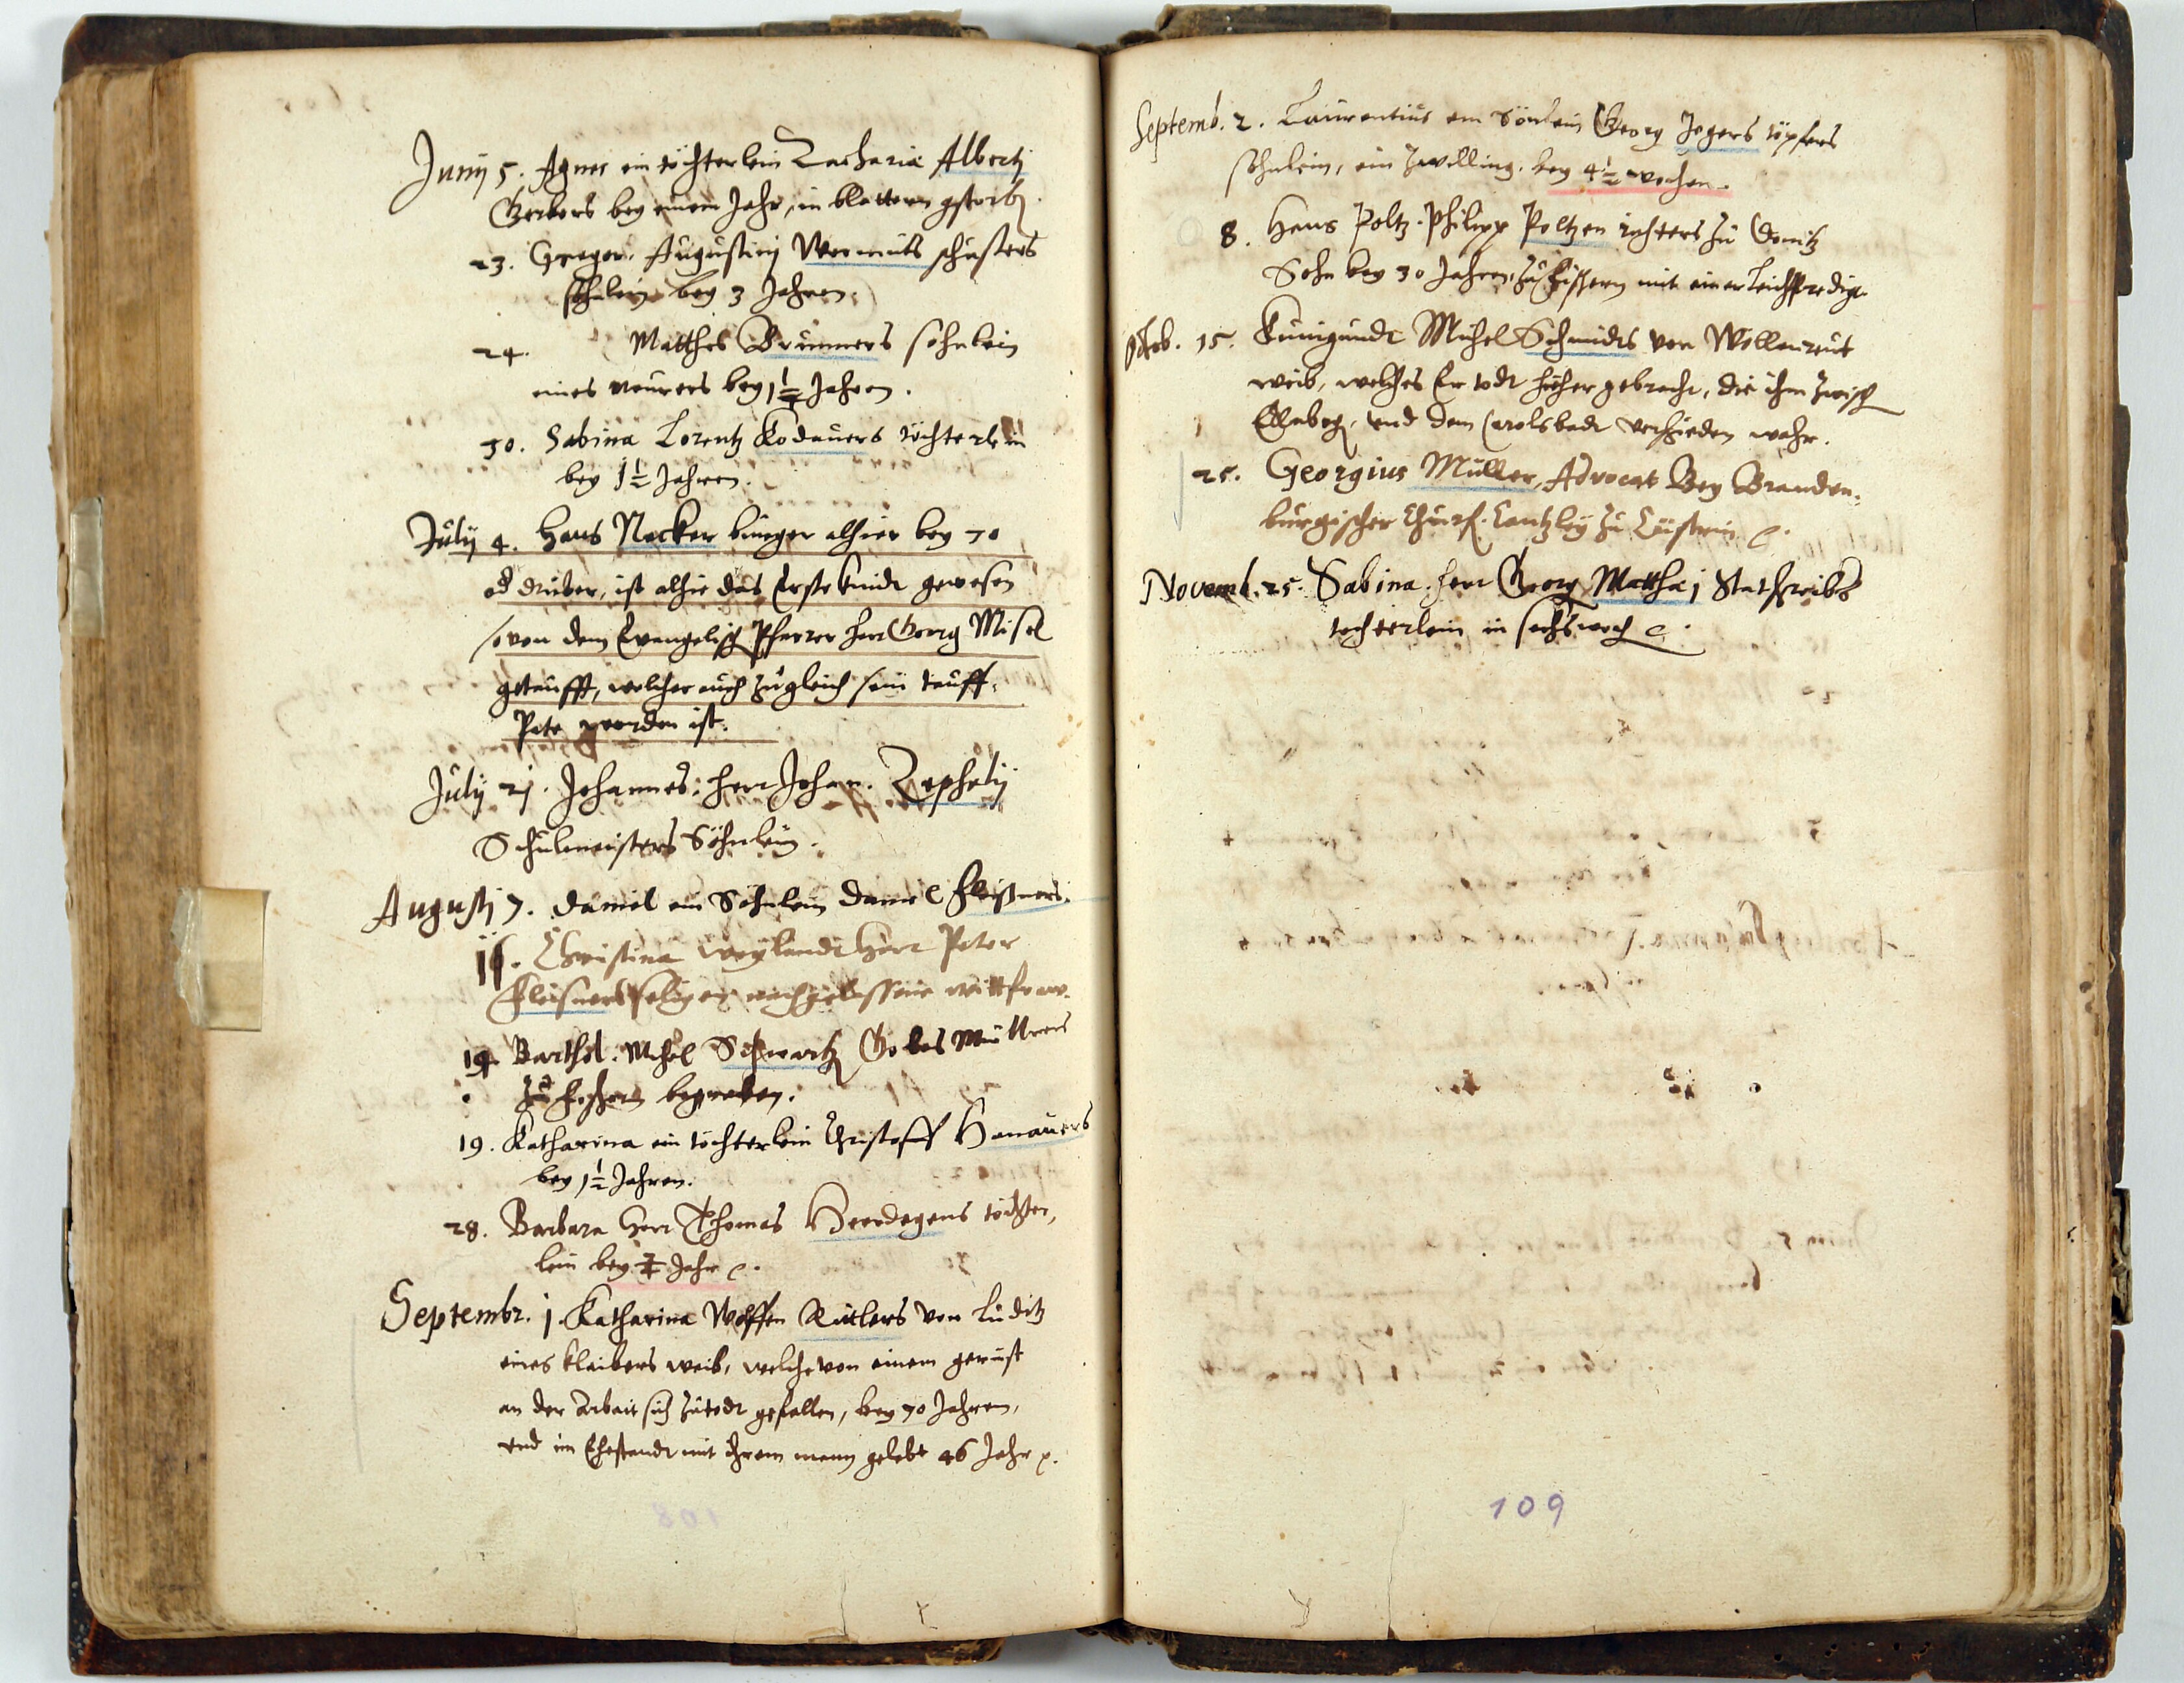 Junij 5. Agnes ein töchterlein Zachariæ Albertj
Gerbers bey einem Jahr, in blattern gestorb.
23. Gregor. Augustinj Wermuts schusters
söhnlein bey 3 Jahren.
24. Matthes Brunners söhnlein
eines maurers bey 1½ Jahren.
30. Sabina Lorentz Kodauers töchterlein
bey 1½ Jahren.
Julij 4. Hans Necker burger alhier bey 70
od druber, ist alhie das Erste kindt gewesen
so von dem Evangelisch Pfarrer herr Georg Misel
getaufft, welcher auch zugleich sein tauff-
Pate worden ist.
Julij 21. Johannes: herr Johan. Zephelij
Schulmeisters Söhnlein.
Augustj 7. Daniel ein Söhnlein Daniel Fleißners.
Christina weylandt Herr Peter
Fleisners seligen nachgelassene wittfraw.
14. Barthol. Michel Schwartz Müllners
begraben.
19. Katharina ein töchterlein Christoff Hanauers
bey 1½ Jahren.
28. Barbara Herr Thomas Heerdegens töchter-
lein bey Jahr
Septembr. 1. Katharina Wolffen Kütlers von Luditz
eines kleibers weib, welche von einem gerüst
an der Arbeit sich zu todt gefallen, bey 70 Jahren,
und im Ehestandt mit ihrem mann gelebt 46 Jahr
108
Septemb. 2. Laurentius ein Sönlein Georg Jegers töpfers
söhnlein, ein zwilling. bey 4½ wochen.
8. Hans Poltz. Philipp Poltzen richters zu Donitz
Sohn bey 30 Jahren, zu Fischern mit einer leichpredigt.
Octob. 15. Kunigundt Michel Schmidts von Wollenreut
weib, welches Er todt hieher gebracht, die ihm zwisch
Ellnbog. und dem Carolsbadt verschieden wahr.
25. Georgius Müller, Advocat Bey Branden-
burgischer Churf. Cantzley zu Cüstrin
Novemb. 25. Sabina. herr Georg Matthaj Statschreibs
tochterlein in sechswoch
109